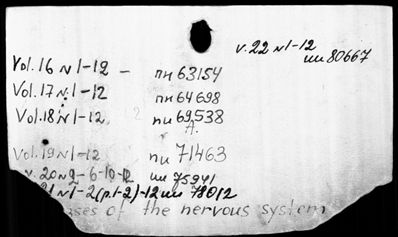 v. 22 N 1-12
ин 80667
Vol. 16 N 1-12 – пн 63154
Vol. 17 N. 1-12 пн 64698
Vol. 18 N 1-12. пн 69538
А.
Vol. 19 N 1-12 пн 71463
v. 20 N 2-6-10-12 ин 75941
21 N 1-2 (p.1-2)-12 ин 78012
ases of the nervous system